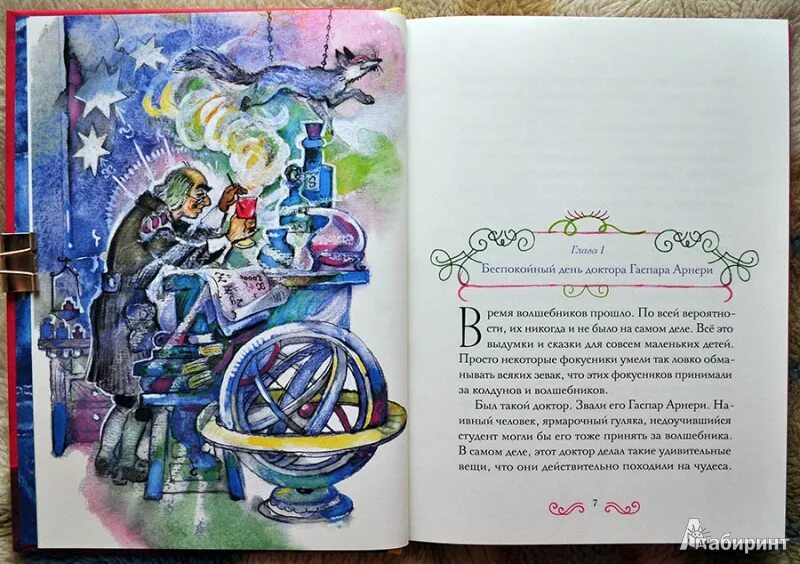 Глава I
Беспокойный день доктора Гаспара Арнери
Время волшебников прошло. По всей вероятно-
сти, их никогда и не было на самом деле. Всё это
выдумки и сказки для совсем маленьких детей.
Просто некоторые фокусники умели так ловко обма-
нывать всяких зевак, что этих фокусников принимали
за колдунов и волшебников.
Был такой доктор. Звали его Гаспар Арнери. На-
ивный человек, ярмарочный гуляка, недоучившийся
студент могли бы его тоже принять за волшебника.
В самом деле, этот доктор делал такие удивительные
вещи, что они действительно походили на чудеса.
7
Лабиринт